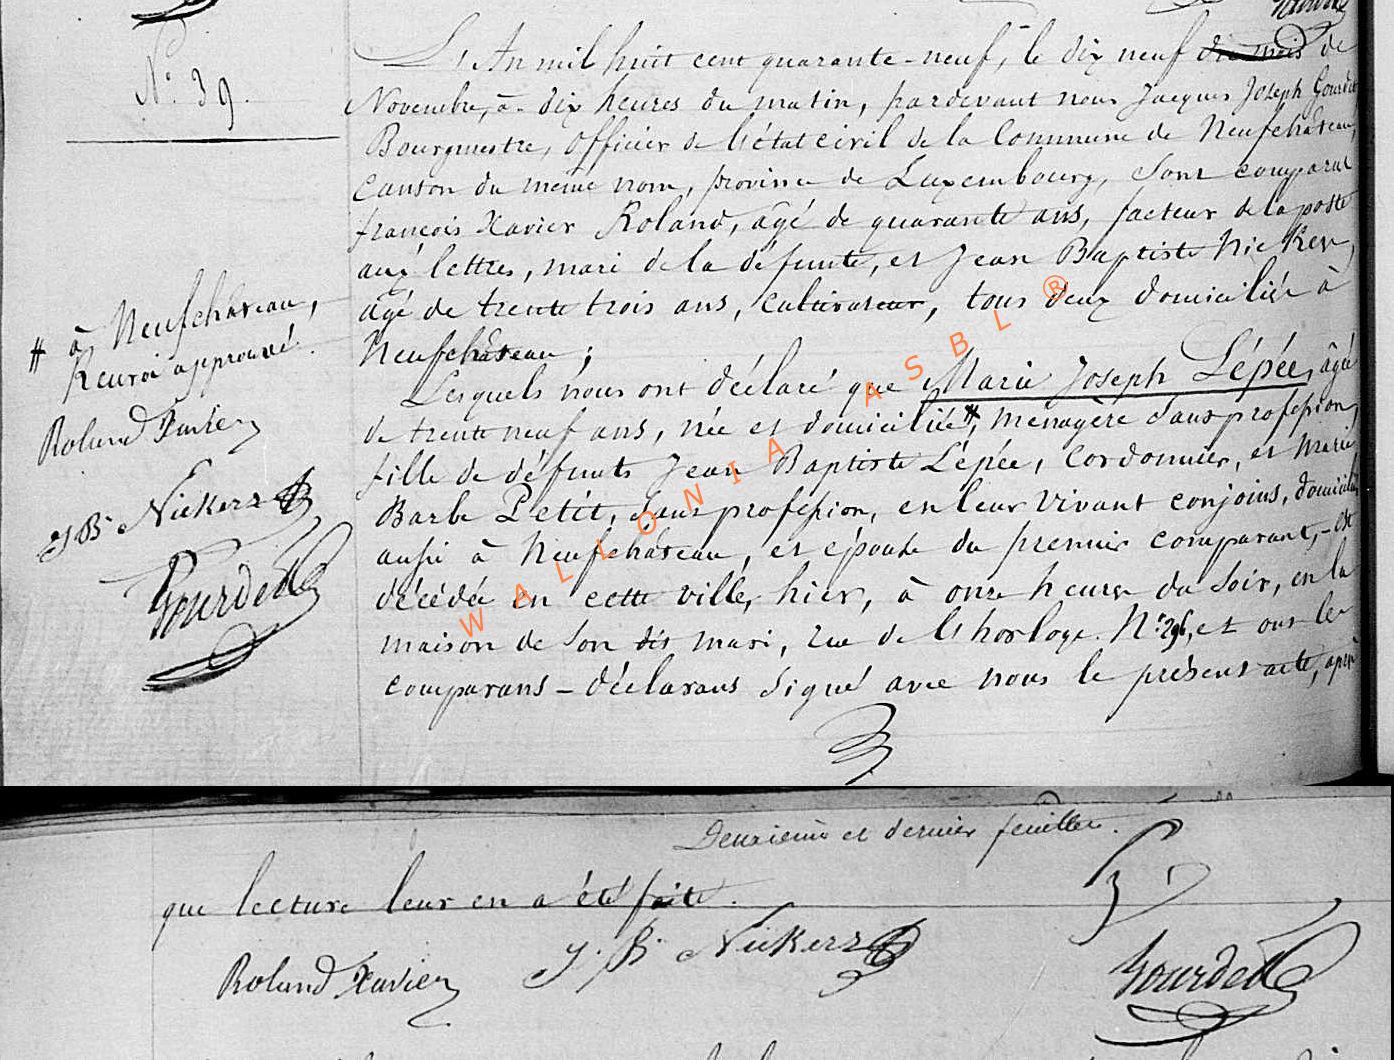 N° 39.
L'An mil huit cent quarante-neuf, le dix neuf du mois de
Novembre, à dix heures du matin, pardevant nous Jacques Joseph Gourdet
Bourgmestre, Officier de l'état civil de la Commune de Neufchateau,
canton du même nom, province de Luxembourg, sont comparu
françois Xavier Roland, âgé de quarante ans, facteur de la poste
aux lettres, mari de la défunte, et Jean Baptiste Nickers,
agé de trente trois ans, cultivateur, tous deux domiciliés à
Neufchâteau ;
Lesquels nous ont déclaré que Marie Joseph Lépée, âgée
de trente neuf ans, née et domiciliée #, ménagère sans profession,
fille de défunts Jean Baptiste Lépée, Cordonnier, et Marie
Barbe Petit, sans profession, en leur vivant conjoins, domiciliés
aussi à Neufchateau, et épouse du premier comparant, - est
décédée en cette ville, hier, à onze heures du soir, en la
maison de son dit mari, rue de l'horloge. N° 296, et ont les
comparans - déclarans signé avec nous le présent acte, après
# à Neufchateau,
Renvoi approuvé.
Roland Xavier
J. Bte Nickers
Gourdet
WALLONIA ASBL ®
Deuxième et dernier feuillet.
que lecture leur en a été faite.
Roland Xavier J. Bte Nickers
Gourdet